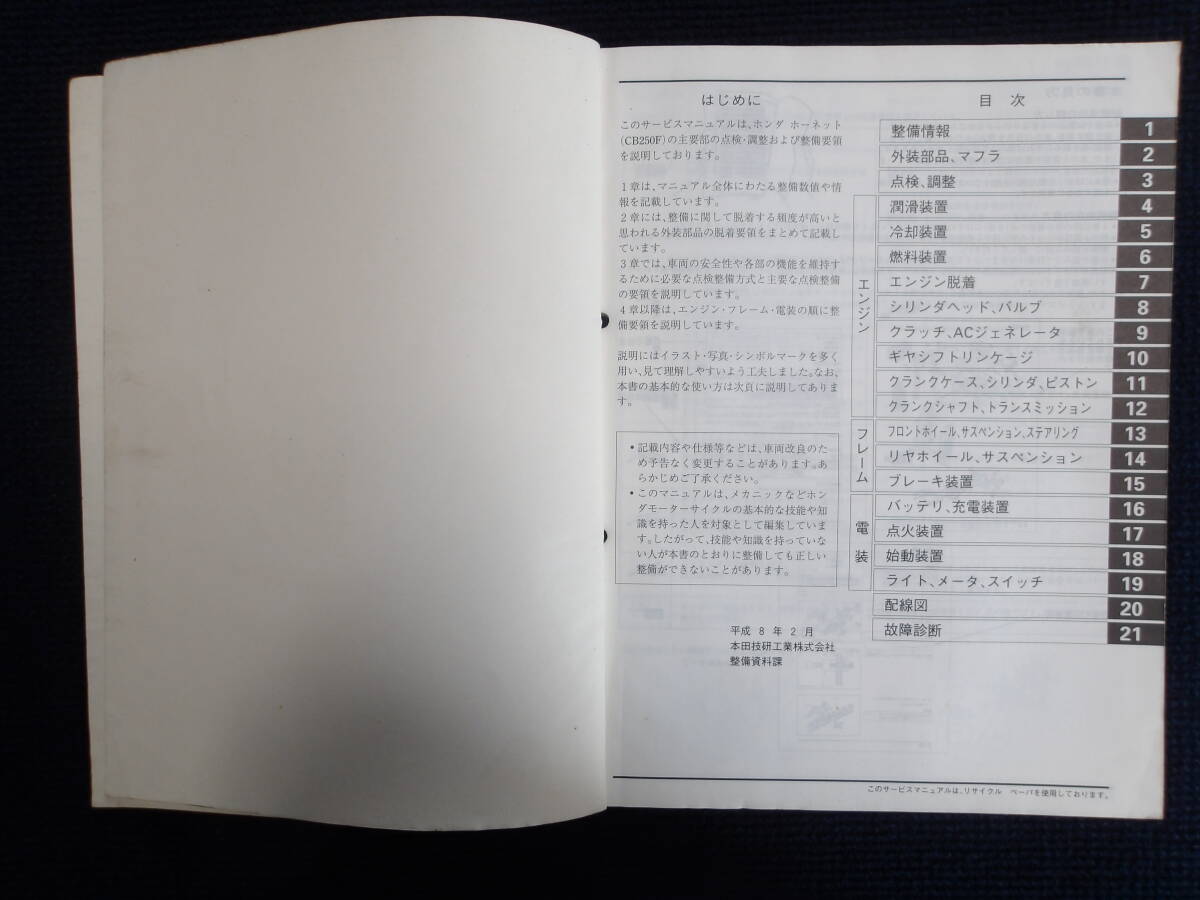 はじめに
このサービスマニュアルは、ホンダ ホーネット
(CB250F)の主要部の点検・調整および整備要領
を説明しております。
1章は、マニュアル全体にわたる整備数値や情
報を記載しています。
2章には、整備に関して脱着する頻度が高いと
思われる外装部品の脱着要領をまとめて記載し
ています。
3章では、車両の安全性や各部の機能を維持す
るために必要な点検整備方式と主要な点検整備
の要領を説明しています。
4章以降は、エンジン・フレーム・電装の順に整
備要領を説明しています。
説明にはイラスト・写真・シンボルマークを多く
用い、見て理解しやすいよう工夫しました。なお、
本書の基本的な使い方は次頁に説明してありま
す。
・記載内容や仕様等などは、車両改良のた
め予告なく変更することがあります。あ
らかじめご了承ください。
・このマニュアルは、メカニックなどホン
ダモーターサイクルの基本的な技能や知
識を持った人を対象として編集していま
す。したがって、技能や知識を持っていな
い人が本書のとおりに整備しても正しい
整備ができないことがあります。
平成 8 年 2 月
本田技研工業株式会社
整備資料課
目 次
整備情報 1
外装部品、マフラ 2
点検、調整 3
エンジン
潤滑装置 4
冷却装置 5
燃料装置 6
エンジン脱着 7
シリンダヘッド、バルブ 8
クラッチ、ACジェネレータ 9
ギヤシフトリンケージ 10
クランクケース、シリンダ、ピストン 11
クランクシャフト、トランスミッション 12
フレーム
フロントホイール、サスペンション、ステアリング 13
リヤホイール、サスペンション 14
ブレーキ装置 15
電装
バッテリ、充電装置 16
点火装置 17
始動装置 18
ライト、メータ、スイッチ 19
配線図 20
故障診断 21
このサービスマニュアルは、リサイクル ペーパを使用しております。